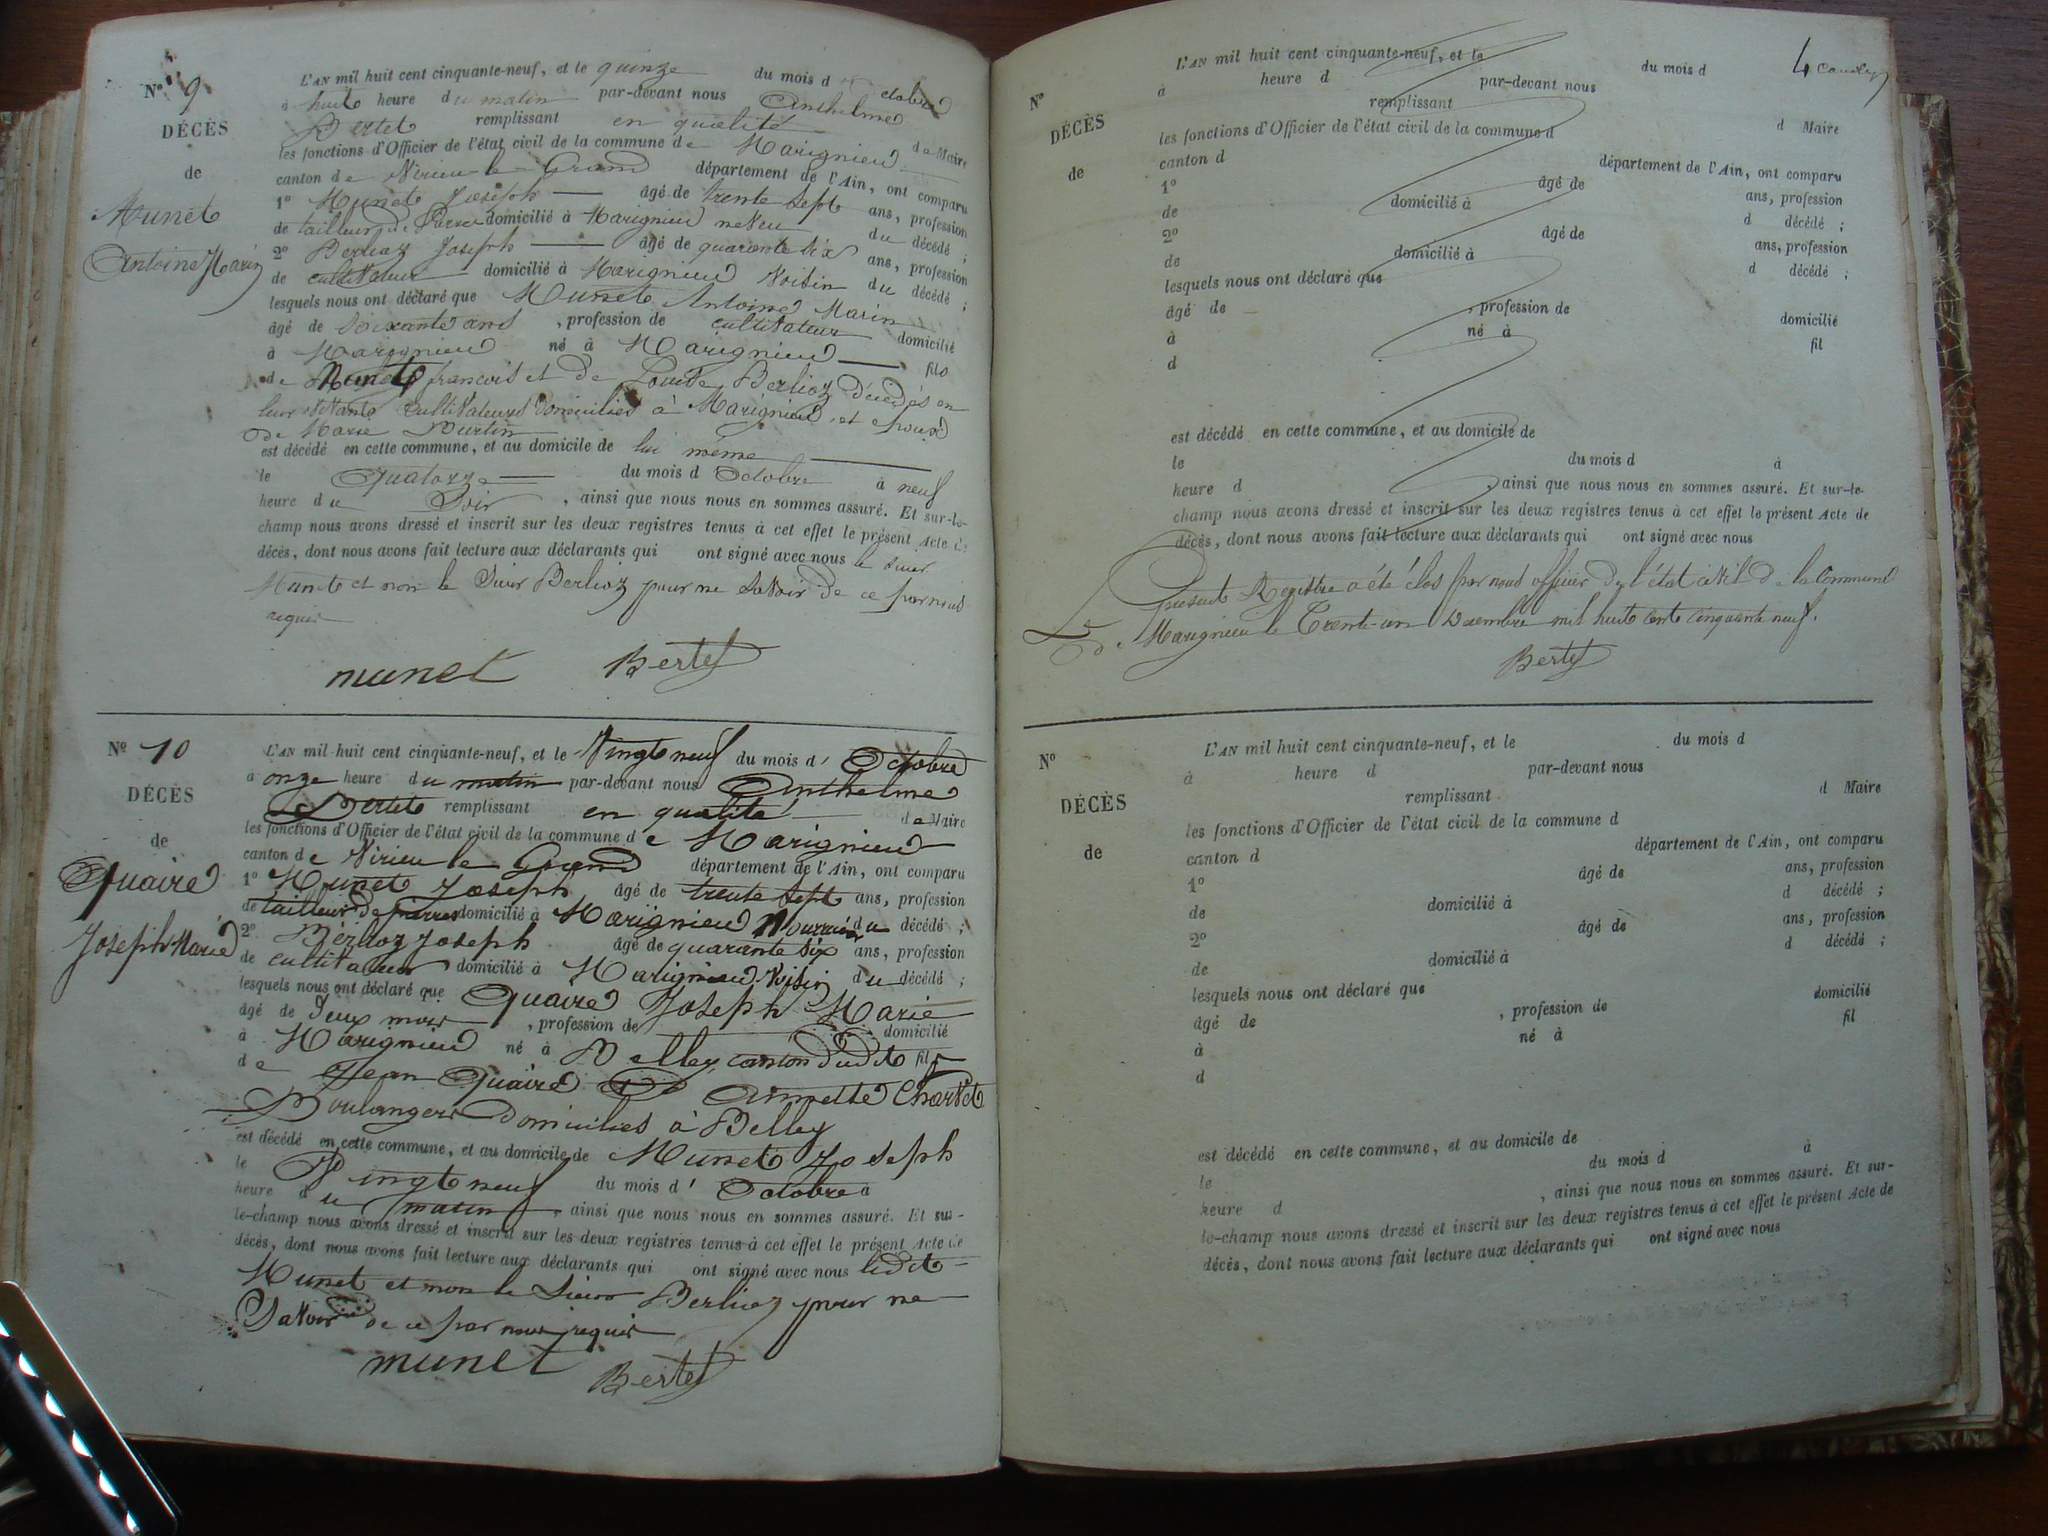 N° 9
DÉCÈS
de
Munet
Antoine Marin
L'AN mil huit cent cinquante-neuf, et le quinze du mois d octobre
à huit heure du matin par-devant nous Anthelme
Bertet remplissant en qualité de Maire
les fonctions d'Officier de l'état civil de la commune de Marignieu
canton de Virieu le Grand département de l'Ain, ont comparu
1° Munet Joseph âgé de trente sept ans, profession
de tailleur de Pierre domicilié à Marignieu neveu du décédé ;
2° Berlioz Joseph âgé de quarante six ans, profession
de cultivateur domicilié à Marignieu Voisin du décédé ;
lesquels nous ont déclaré que Munet Antoine Marin
âgé de soixante ans , profession de cultivateur domicilié
à Marignieu né à Marignieu fils
de Munet francois et de Louise Berlioz décédés en
leur vivants cultivateurs domiciliés à Marignieu, et epoux
de Marie Burtin
est décédé en cette commune, et au domicile de lui même
le Quatorze du mois d Octobre à neuf
heure du Soir , ainsi que nous nous en sommes assuré. Et sur-le-
champ nous avons dressé et inscrit sur les deux registres tenus à cet effet le présent Acte de
décès, dont nous avons fait lecture aux déclarants qui ont signé avec nous le sieur
Munet et non le Sieur Berlioz pour ne savoir de ce par nous
requis
munet Bertet
N° 10
DÉCÈS
de
Quaire
Joseph Marie
L'AN mil huit cent cinquante-neuf, et le Vingt neuf du mois d' Octobre
à onze heure du matin par-devant nous Anthelme
Bertet remplissant en qualité de Maire
les fonctions d'Officier de l'état civil de la commune de Marignieu
canton de Virieu le Grand département de l'Ain, ont comparu
1° Munet Joseph âgé de trente sept ans, profession
de tailleur de pierres domicilié à Marignieu du décédé ;
2° Berlioz Joseph âgé de quarante six ans, profession
de cultivateur domicilié à Marignieu Voisin du décédé ;
lesquels nous ont déclaré que Quaire Joseph Marie
âgé de deux mois , profession de domicilié
à Marignieu né à Belley canton dudit fils
de Jean Quaire et Annette Charvet
Boulangers domiciliés à Belley
est décédé en cette commune, et au domicile de Munet Joseph
le Vingt neuf du mois d' Octobre à
heure du matin , ainsi que nous nous en sommes assuré. Et sur-
le-champ nous avons dressé et inscrit sur les deux registres tenus à cet effet le présent Acte de
décès, dont nous avons fait lecture aux déclarants qui ont signé avec nous ledit
Munet et non le Sieur Berlioz pour ne
Savoir de ce par nous requis
munet Bertet
4
N°
DÉCÈS
de
L'AN mil huit cent cinquante-neuf, et le du mois d
à heure d par-devant nous
remplissant d Maire
les fonctions d'Officier de l'état civil de la commune d
canton d département de l'Ain, ont comparu
1° âgé de ans, profession
de domicilié à d décédé ;
2° âgé de ans, profession
de domicilié à d décédé ;
lesquels nous ont déclaré que
âgé de , profession de domicilié
à né à fil
d
est décédé en cette commune, et au domicile de
le du mois d à
heure d , ainsi que nous nous en sommes assuré. Et sur-le-
champ nous avons dressé et inscrit sur les deux registres tenus à cet effet le présent Acte de
décès, dont nous avons fait lecture aux déclarants qui ont signé avec nous
Le présent Registre a été clos par nous officier de l'état civil de la Commune
de Marignieu le Trente-un Decembre mil huit cent cinquante neuf.
Bertet
N°
DÉCÈS
de
L'AN mil huit cent cinquante-neuf, et le du mois d
à heure d par-devant nous
remplissant d Maire
les fonctions d'Officier de l'état civil de la commune d
canton d département de l'Ain, ont comparu
1° âgé de ans, profession
de domicilié à d décédé ;
2° âgé de ans, profession
de domicilié à d décédé ;
lesquels nous ont déclaré que
âgé de , profession de domicilié
à né à fil
d
est décédé en cette commune, et au domicile de
le du mois d à
heure d , ainsi que nous nous en sommes assuré. Et sur-
le-champ nous avons dressé et inscrit sur les deux registres tenus à cet effet le présent Acte de
décès, dont nous avons fait lecture aux déclarants qui ont signé avec nous